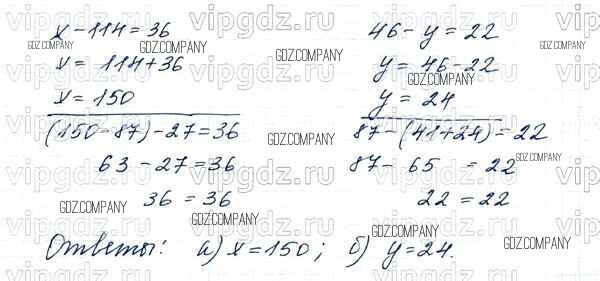 x - 114 = 36
x = 114 + 36
x = 150
(150 - 87) - 27 = 36
63 - 27 = 36
36 = 36
46 - y = 22
y = 46 - 22
y = 24
87 - (41 + 24) = 22
87 - 65 = 22
22 = 22
Ответы: а) x = 150; б) y = 24.
vipgdz.ru
GDZ.COMPANY